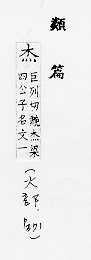 類篇
杰
巨列切魏杰梁
四公子名文一
(火部